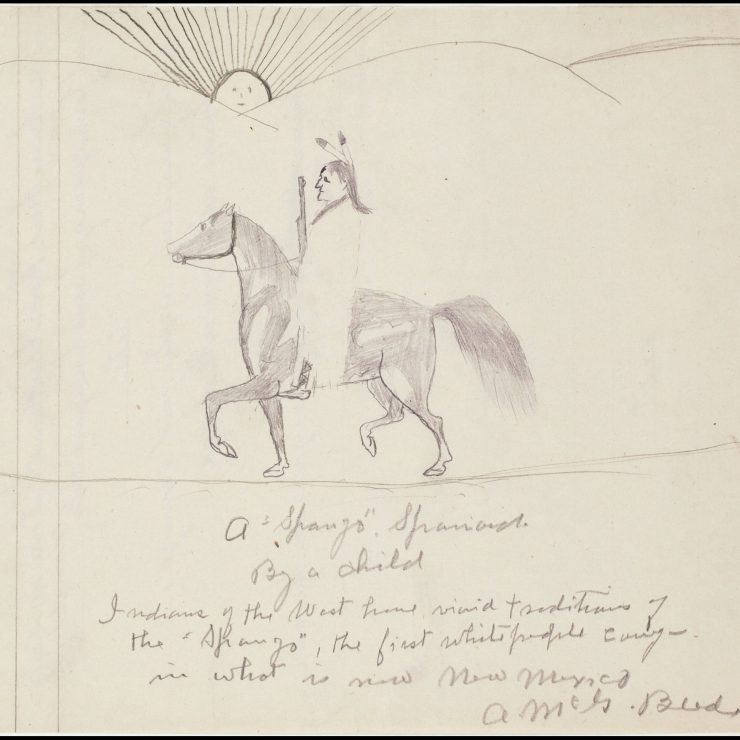 A "Spango", Spaniard.
By a child
Indians of the West have vivid traditions of
the "Spango", the first white people
in what is now New Mexico
A. McG. Beede